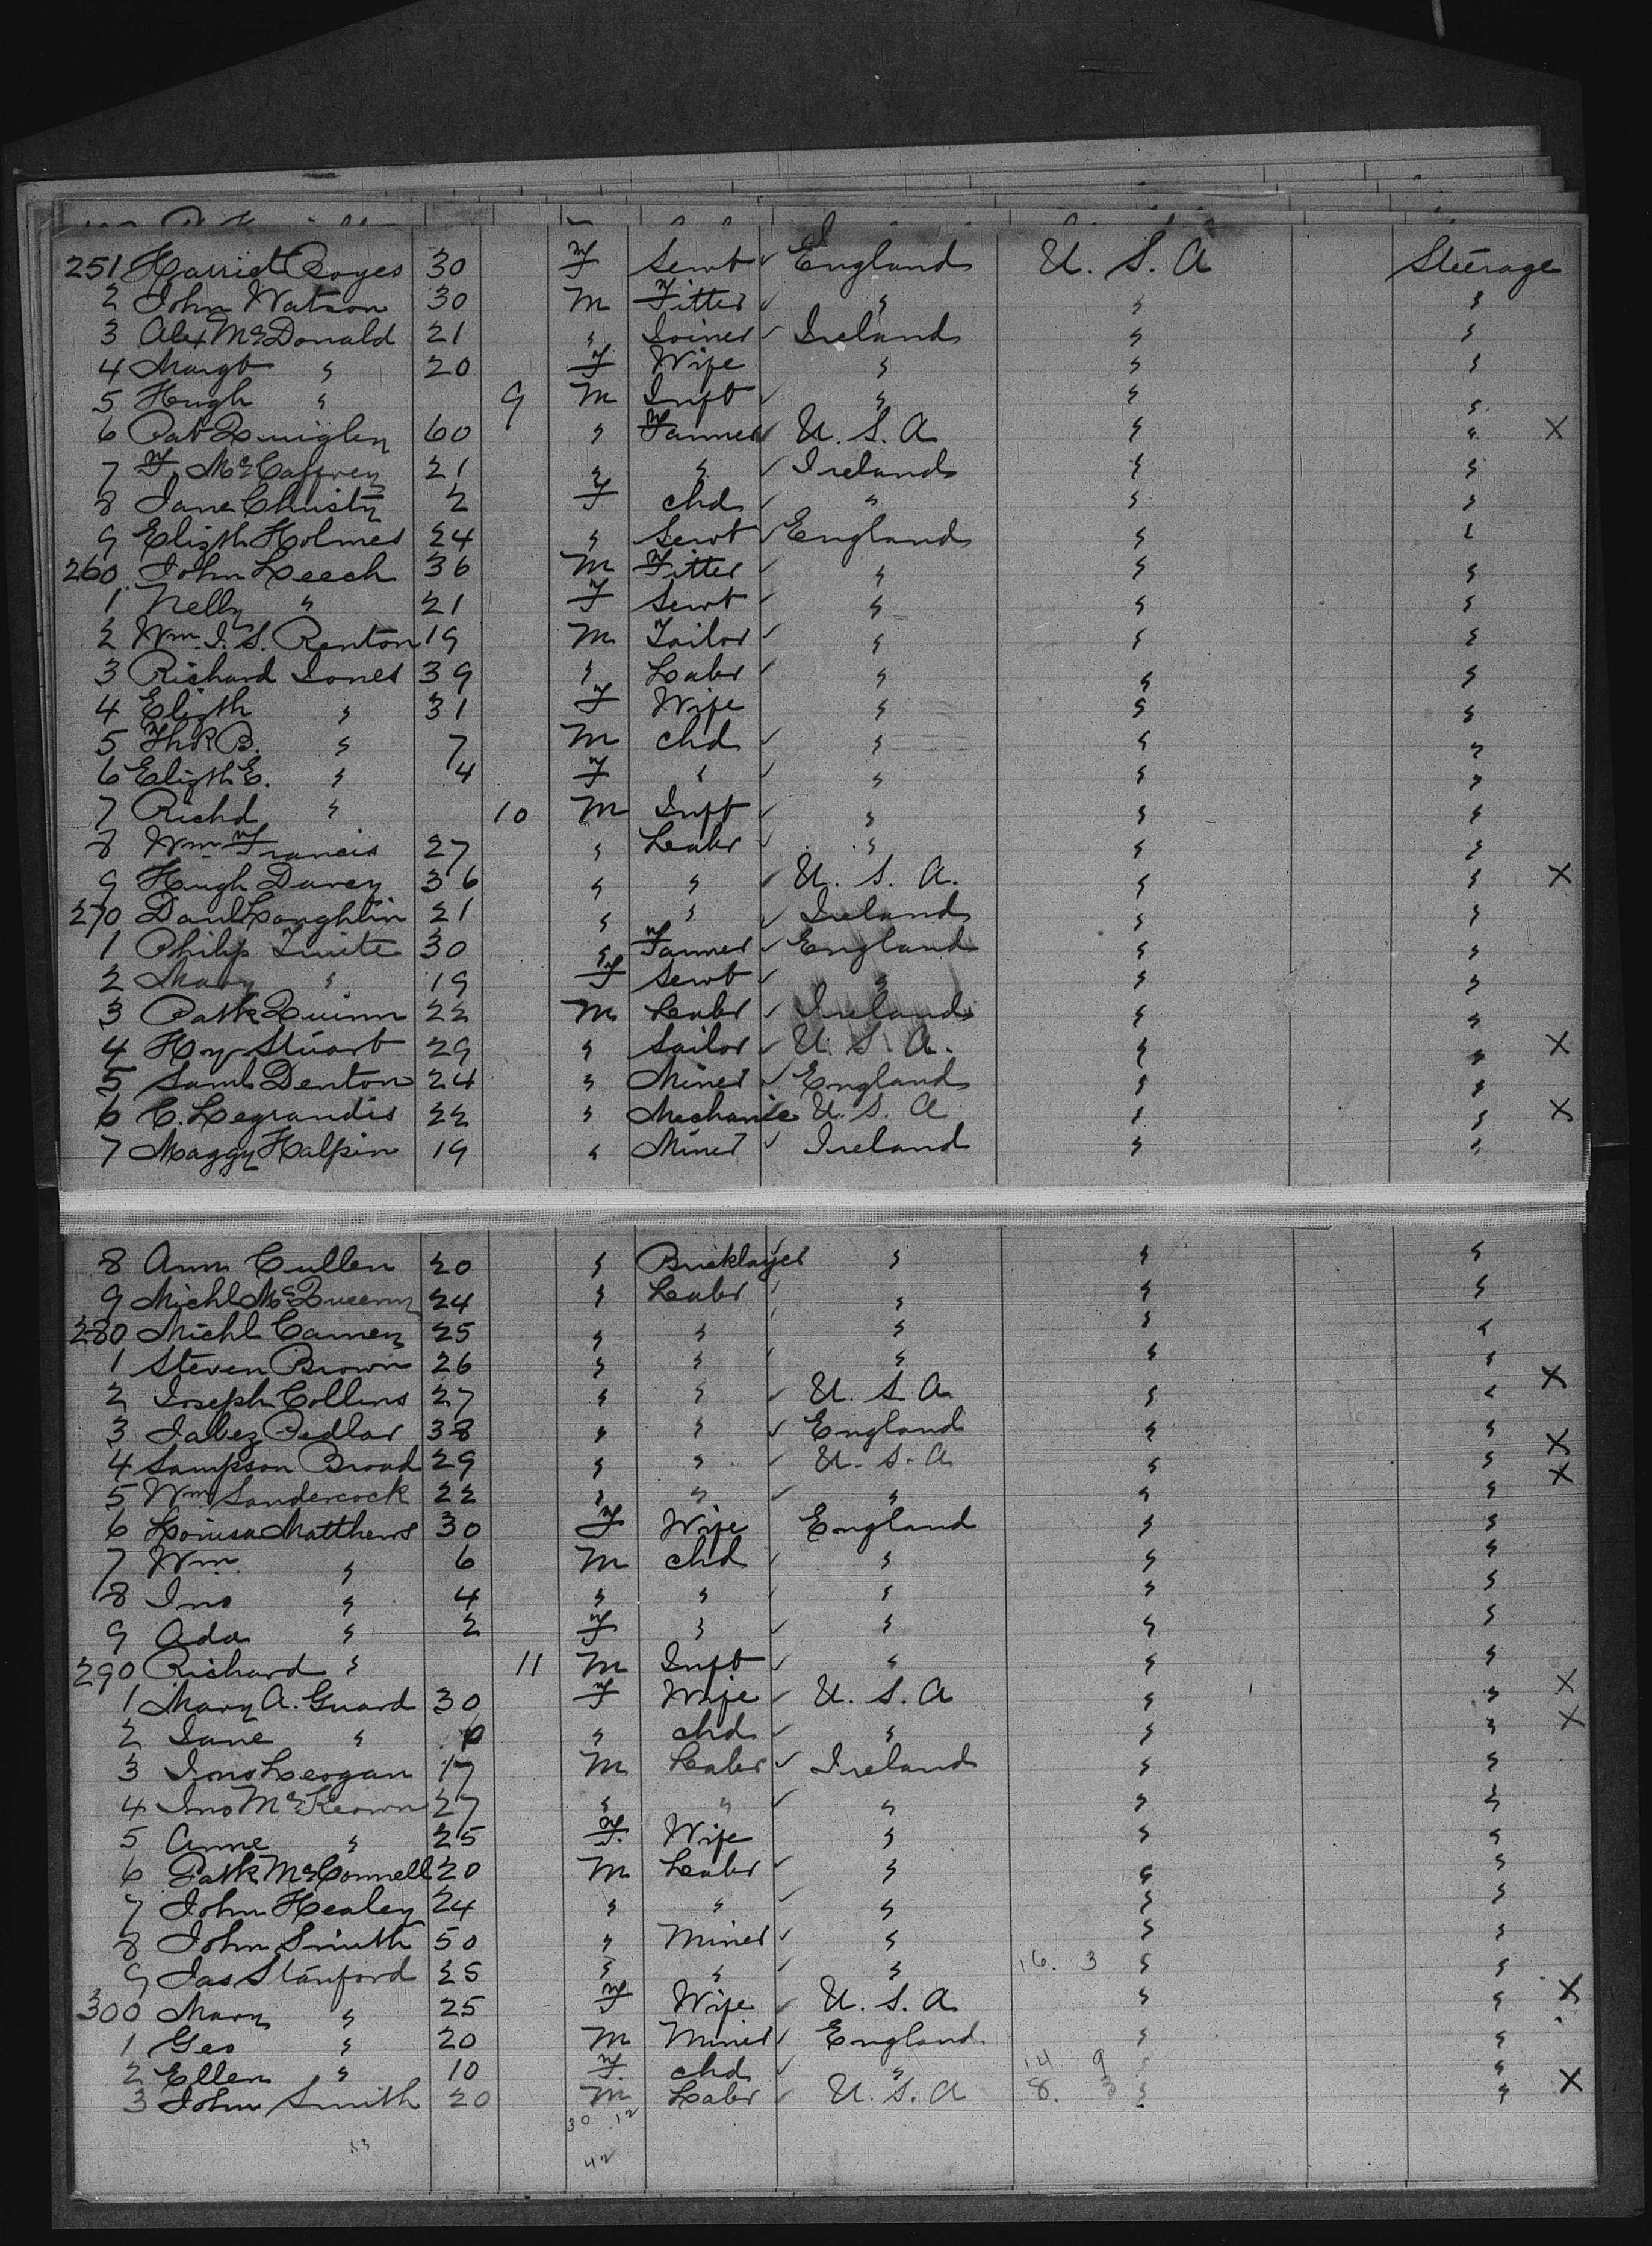 251 Harriet Boyes 30 F Servt ✓ England U. S. A Steerage
2 John Watson 30 M Fitter ✓ " " "
3 Alex McDonald 21 " Joiner ✓ Ireland " "
4 Margt " 20 F Wife " " "
5 Hugh " 9 M Inft ✓ " " "
6 Pat Quigley 60 " Farmer ✓ U. S. A " " X
7 F. McCaffrey 21 " " ✓ Ireland " "
8 Jane Christy 2 F chd ✓ " " "
9 Elizth Holmes 24 " Servt ✓ England " "
260 John Leech 36 M Fitter ✓ " " "
1 Nelly " 21 F Servt ✓ " " "
2 Wm. J. S. Renton 19 M Tailor ✓ " " "
3 Richard Jones 39 " Labr ✓ " " "
4 Elizth " 31 F Wife " " "
5 B. " 7 M chd ✓ " " "
6 Elizth E. " 4 F " ✓ " " "
7 Richd " 10 M Inft ✓ " " "
8 Wm Francis 27 " Labr ✓ " " "
9 Hugh Davey 36 " " ✓ U. S. A. " " X
270 Danl Loughlin 21 " " ✓ Ireland " "
1 Philip Tuite 30 " Farmer ✓ England " "
2 Mary " 19 F Servt ✓ " " "
3 Patk Quinn 22 M Labr ✓ Ireland " "
4 Hy Stuart 29 " Sailor ✓ U. S. A. " " X
5 Saml Denton 24 " Miner ✓ England " "
6 C. Legrandis 22 " Mechanic U. S. A " " X
7 Maggy Halpin 19 " Miner ✓ Ireland " "
8 Ann Cullen 20 " Bricklayer " " "
9 Michl McQueeny 24 " Labr " " "
280 Michl Carney 25 " " " " "
1 Steven Brown 26 " " " " "
2 Joseph Collins 27 " " ✓ U. S. A " " X
3 Jabez Pedlar 38 " " ✓ England " "
4 Sampson Broad 29 " " ✓ U. S. A " " X
5 Wm Sandercock 22 " " ✓ " " " X
6 Louisa Matthews 30 F Wife England " "
7 Wm " 6 M chd ✓ " " "
8 Jno " 4 " " ✓ " " "
9 Ada " 2 F " ✓ " " "
290 Richard " 11 M Inft ✓ " " "
1 Mary A. Guard 30 F Wife ✓ U. S. A " " X
2 Jane " " chd ✓ " " " X
3 Jno Leogan 17 M Labr ✓ Ireland " "
4 Jno McKeown 27 " " ✓ " " "
5 Anne " 25 F. Wife " " "
6 Patk McConnell 20 M Labr ✓ " " "
7 John Healey 24 " " ✓ " " "
8 John Smith 50 " Miner ✓ " " "
9 Jas Stanford 25 " " " 16. 3 " "
300 Mary " 25 F Wife ✓ U. S. A " " X
1 Geo " 20 M Miner ✓ England " "
2 Ellen " 10 F. chd ✓ " 14 9 " "
3 John Smith 20 M Labr ✓ U. S. A 8. 3 " " X
30 12
53
42